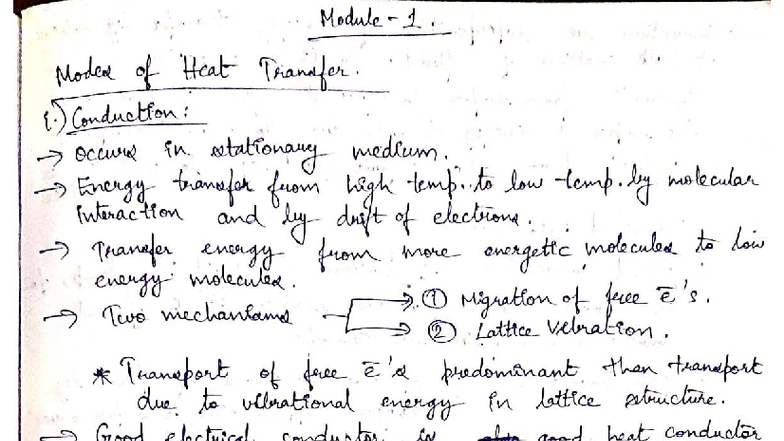 Module - 1.
Modes of Heat Transfer.
1.) Conduction:
→ Occurs in stationary medium.
→ Energy transfer from high temp. to low temp. by molecular
interaction and by drift of electrons.
→ Transfer energy from more energetic molecules to low
energy molecules.
→ Two mechanisms → ① Migration of free ē's.
→ ② Lattice Vibration.
* Transport of free ē's predominant than transport
due to vibrational energy in lattice structure.
→ Good electrical conductor is good heat conductor